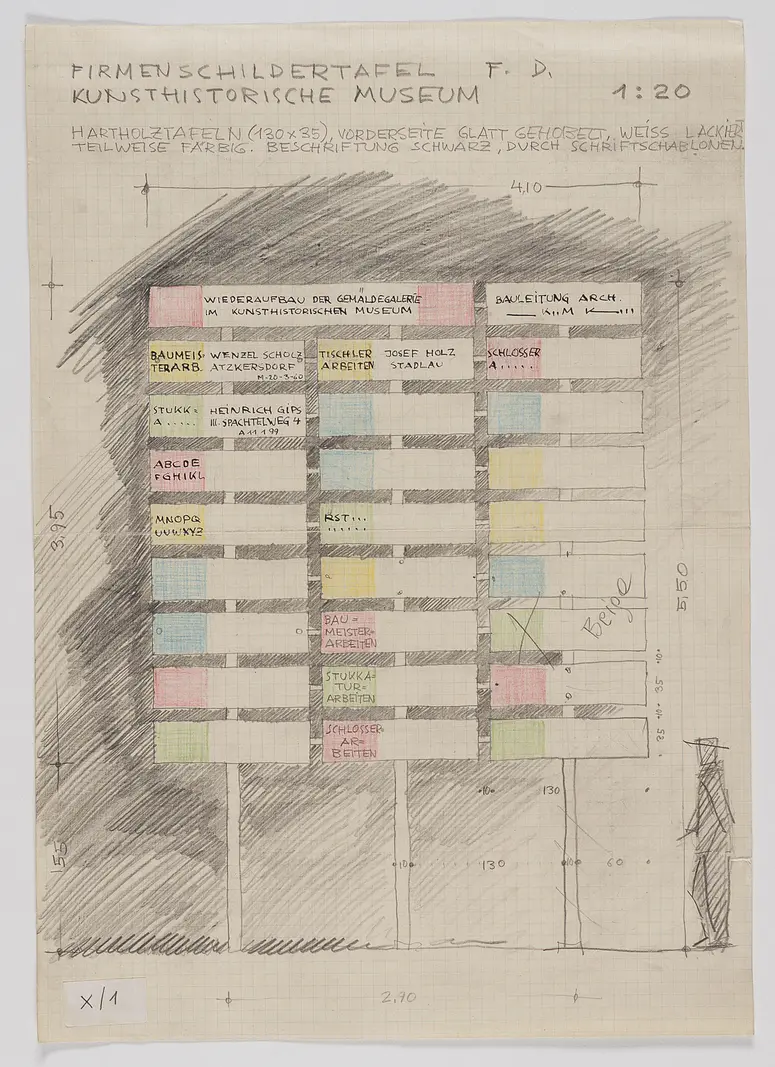 FIRMENSCHILDERTAFEL F. D.
KUNSTHISTORISCHE MUSEUM 1:20
HARTHOLZTAFELN (130×35), VORDERSEITE GLATT GEHOBELT, WEISS LACKIERT
TEILWEISE FÄRBIG. BESCHRIFTUNG SCHWARZ, DURCH SCHRIFTSCHABLONEN.
4,10
WIEDERAUFBAU DER GEMÄLDEGALERIE
IM KUNSTHISTORISCHEN MUSEUM
BAULEITUNG ARCH.
BAUMEIS-
TERARB.
WENZEL SCHOLZ
ATZKERSDORF
M-20-3-60
TISCHLER
ARBEITEN
JOSEF HOLZ
STADLAU
SCHLOSSER
A.....
STUKK=
A.....
HEINRICH GIPS
III. SPACHTELWEG 4
A 11 1 99
ABCDE
FGHIKL
MNOPQ
UVWXYZ
RST...
......
3,95
5,50
Beige
BAU=
MEISTER=
ARBEITEN
STUKKA=
TUR=
ARBEITEN
SCHLOSSER=
AR=
BEITEN
10
35
10
35
10 130
155
10 130 10 60
2,90
X/1